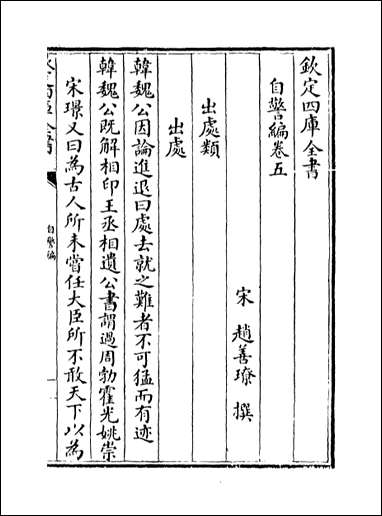 欽定四庫全書
自警編卷五
宋 趙善璙 撰
出處類
出處
韓魏公因論進退曰處去就之難者不可猛而有迹
韓魏公既解相印王丞相遺公書謂過周勃霍光姚崇
宋璟又曰為古人所未嘗任大臣所不敢天下以為
自警編
一